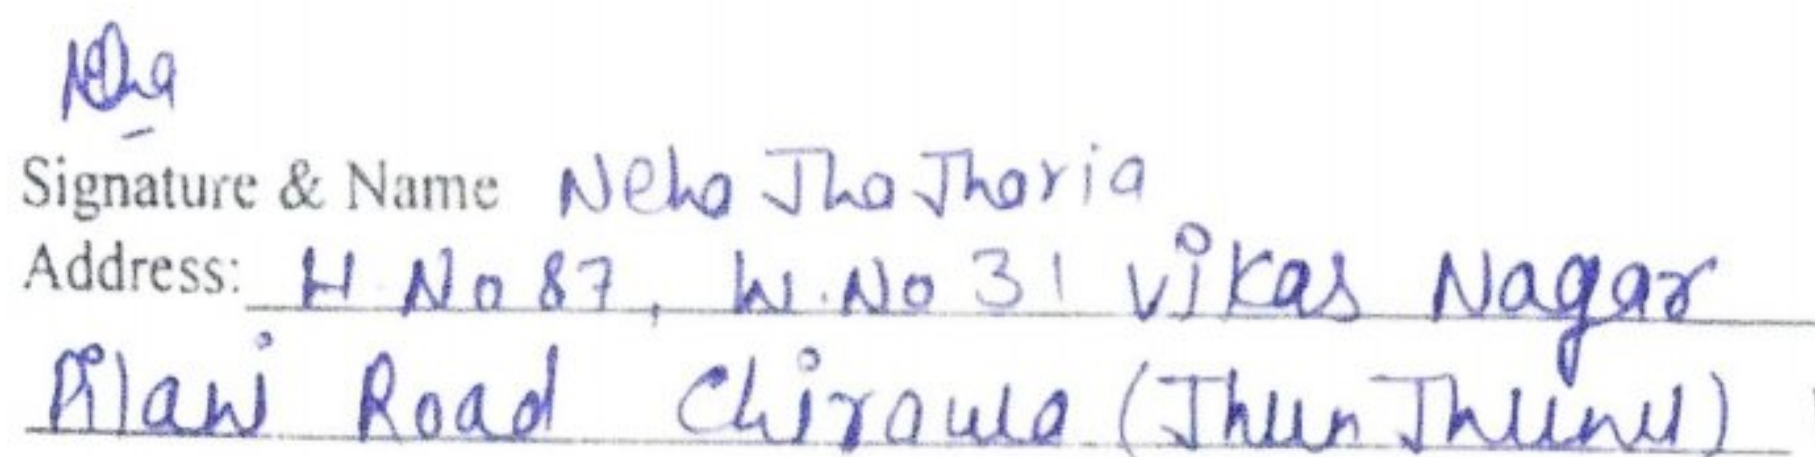 Neha
Signature & Name Neha JhaJharia
Address: H.No 87, W.No 31 Vikas Nagar
Pilani Road Chirawa (JhunJhunu)